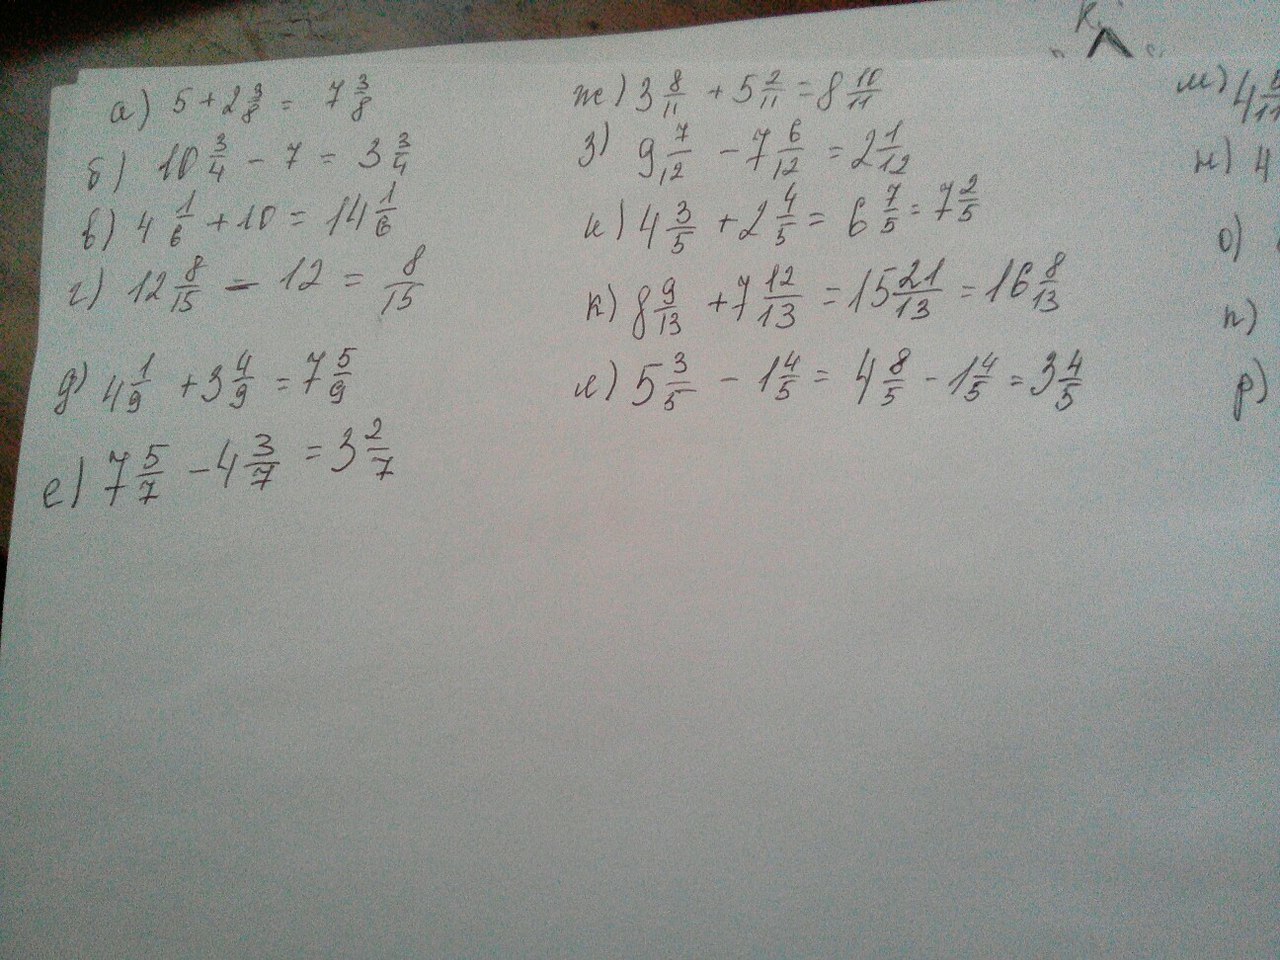 а) 5 + 2 3/8 = 7 3/8
б) 10 3/4 - 7 = 3 3/4
в) 4 1/6 + 10 = 14 1/6
г) 12 8/15 - 12 = 8/15
д) 4 1/9 + 3 4/9 = 7 5/9
е) 7 5/7 - 4 3/7 = 3 2/7
ж) 3 8/11 + 5 2/11 = 8 10/11
з) 9 7/12 - 7 6/12 = 2 1/12
и) 4 3/5 + 2 4/5 = 6 7/5 = 7 2/5
к) 8 9/13 + 7 12/13 = 15 21/13 = 16 8/13
л) 5 3/5 - 1 4/5 = 4 8/5 - 1 4/5 = 3 4/5
м) 4
н) 4
о)
п)
р)